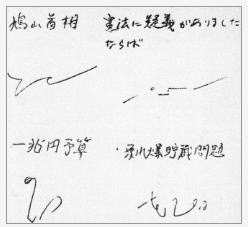 鳩山首相
憲法に疑義がありました
ならば
一兆円予算
・原水爆貯蔵問題